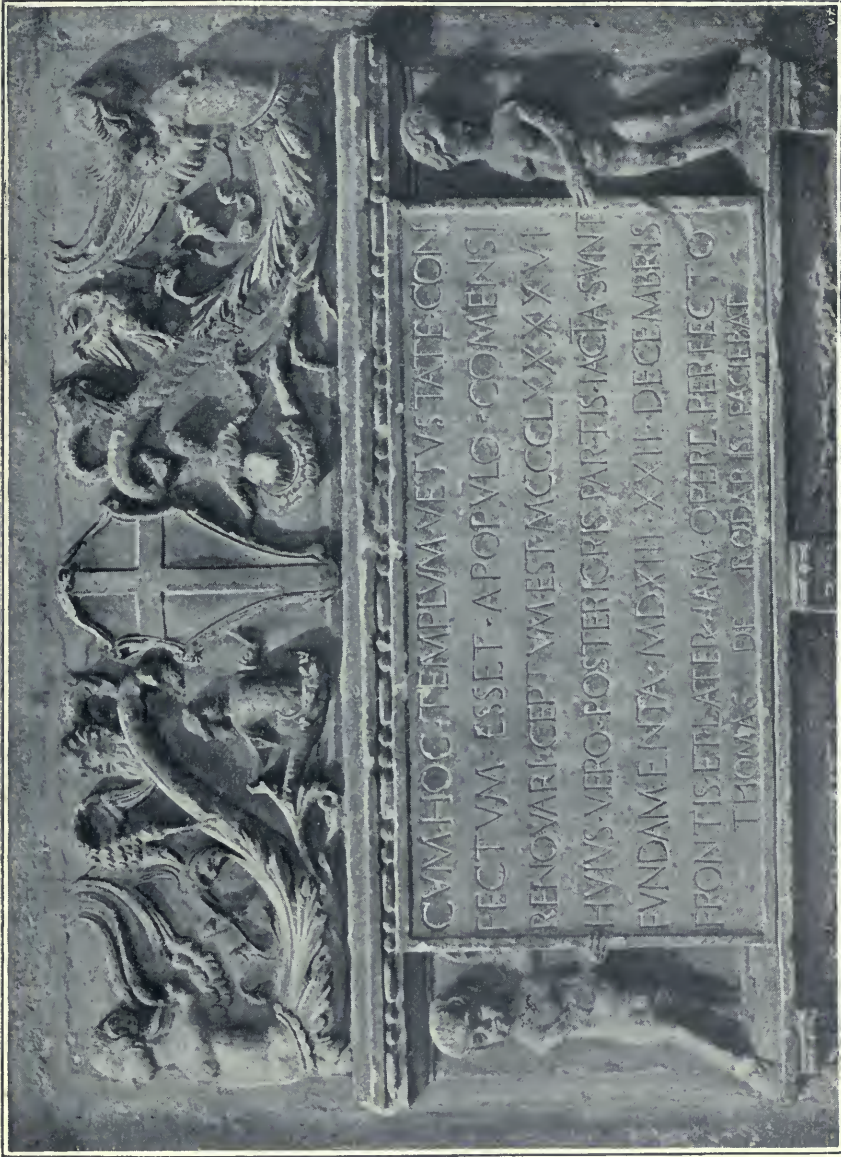 CVM·HOC·TEMPLVM·VETVSTATE·CON
FECTVM·ESSET·APOPVLO·COMENSI
RENOVARI·CEPTVM·EST·MCCCLXXXXVI
HVIVS·VERO·POSTERIORIS·PARTIS·IACTA·SVNT
FVNDAMENTA·MDXIII·XXII·DECEMBRIS
FRONTIS·ET·LATER·IAM·OPERE·PERFECTO
THOMAS·DE·RODARIS·FACIEBAT